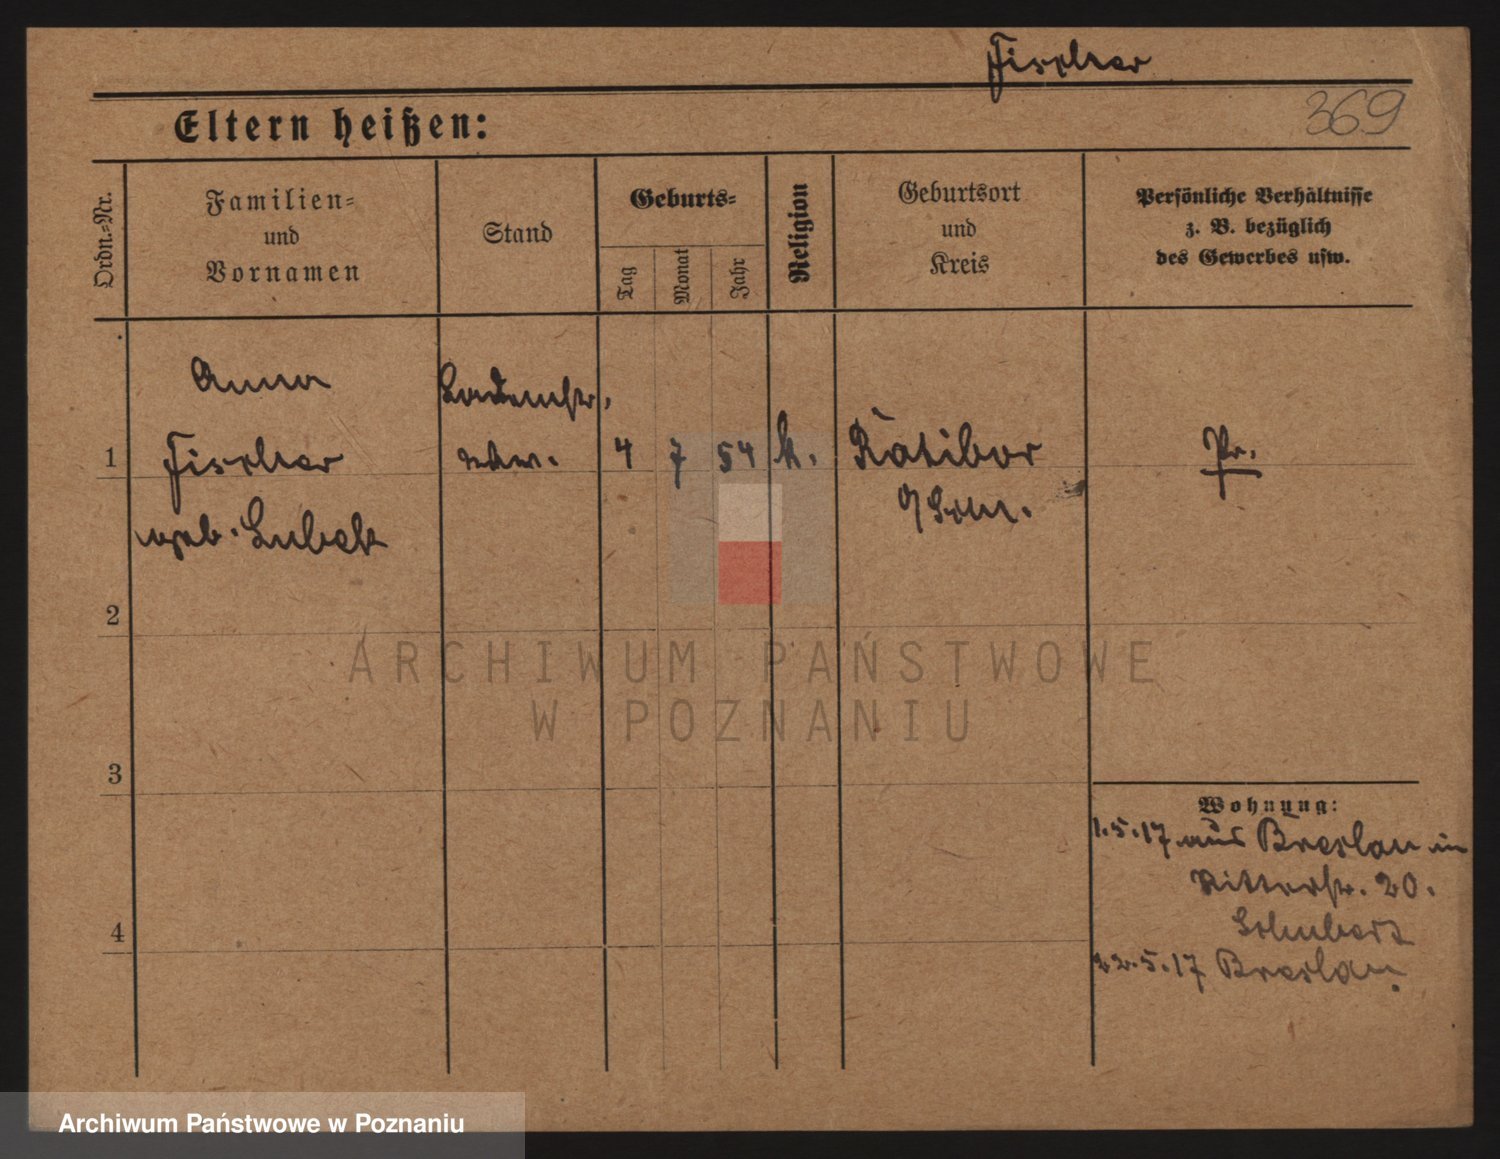 Fischer
369
Eltern heißen:
Ordn.=Nr.
Familien=
und
Vornamen
Stand
Geburts=
Tag
Monat
Jahr
Religion
Geburtsort
und
Kreis
Persönliche Verhältnisse
z. B. bezüglich
des Gewerbes usw.
Anna
1 Fischer
geb. Lubek
4 7 54 k.
Ratibor
Pr.
2
ARCHIWUM PAŃSTWOWE
W POZNANIU
3
Wohnung:
1.5.17 aus Breslau in
Ritterstr. 20.
Schubert
22.5.17 Breslau.
4
Archiwum Państwowe w Poznaniu